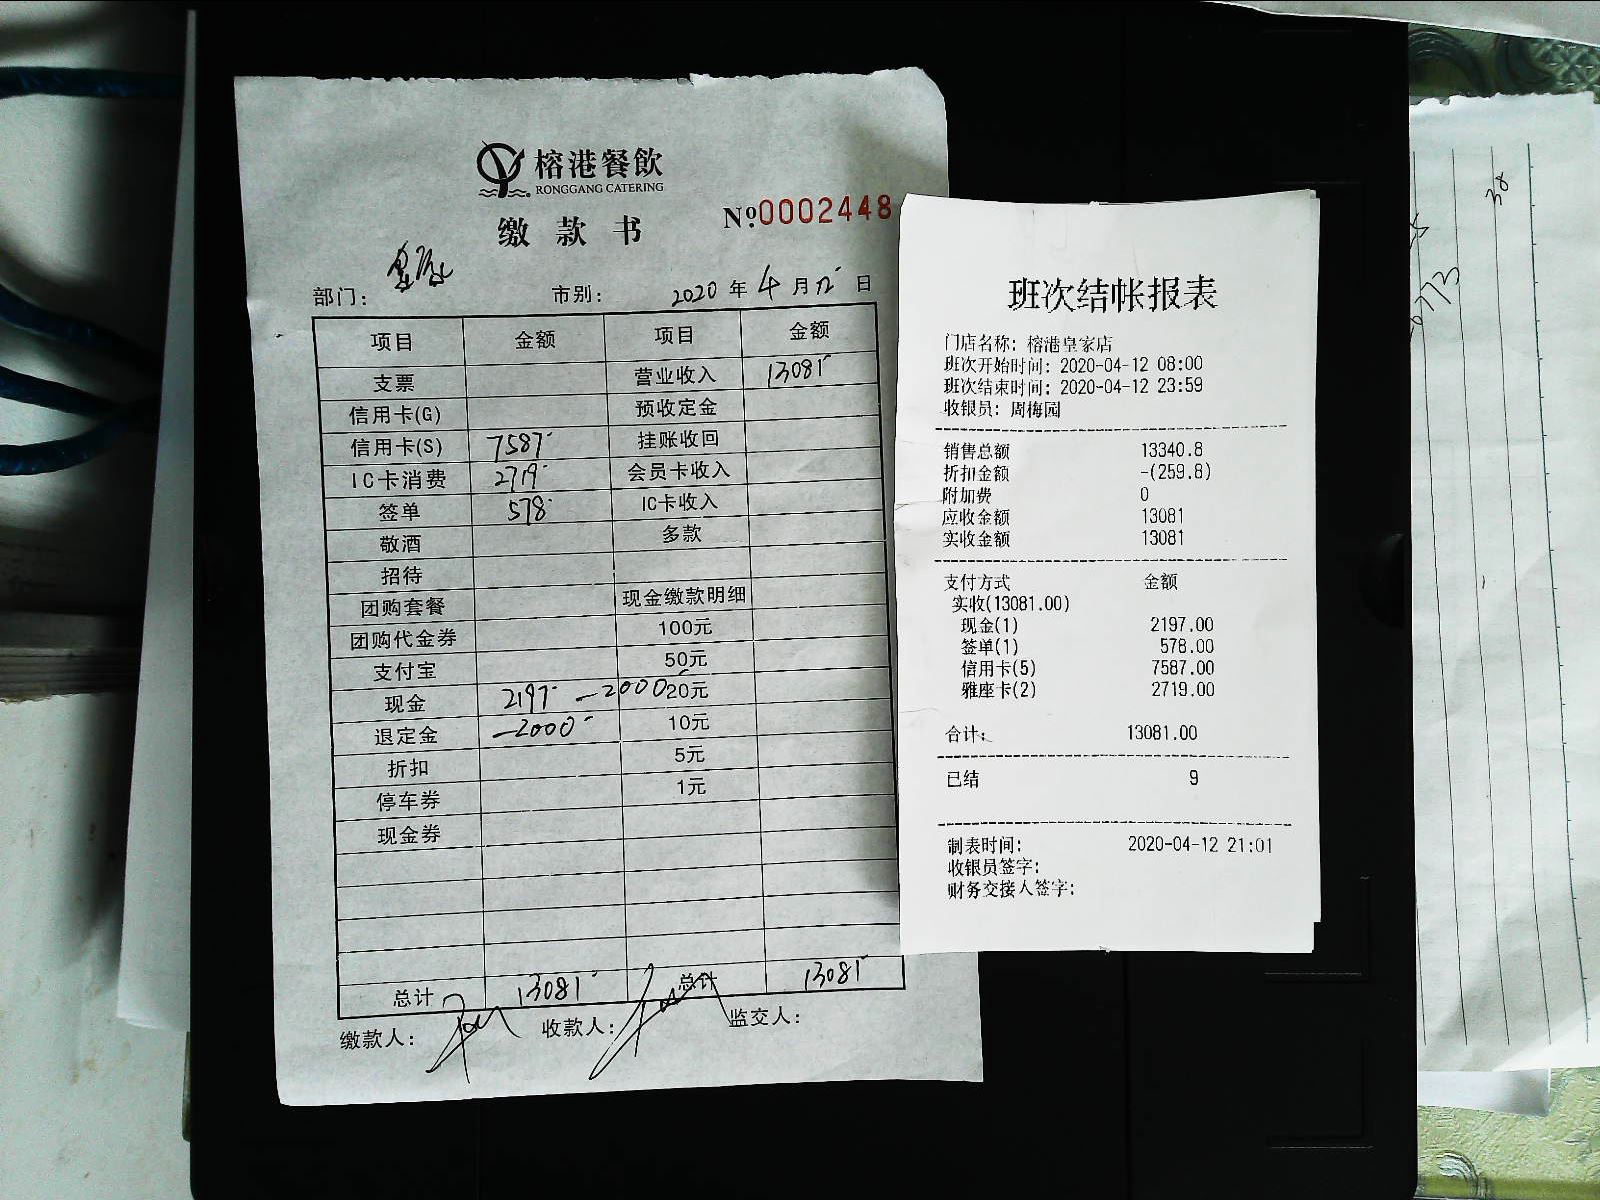 榕港餐飲
RONGGANG CATERING
缴款书
№0002448
部门： 皇家 市别： 2020 年 4 月 12 日
项目 金额 项目 金额
支票 营业收入 13081
信用卡(G) 预收定金
信用卡(S) 7587 挂账收回
IC卡消费 2719 会员卡收入
签单 578 IC卡收入
敬酒 多款
招待
团购套餐 现金缴款明细
团购代金券 100元
支付宝 50元
现金 2197 -2000 20元
退定金 -2000 10元
折扣 5元
停车券 1元
现金券
总计 13081 总计 13081
缴款人： 收款人： 监交人：
班次结帐报表
门店名称: 榕港皇家店
班次开始时间: 2020-04-12 08:00
班次结束时间: 2020-04-12 23:59
收银员: 周梅园
销售总额 13340.8
折扣金额 -(259.8)
附加费 0
应收金额 13081
实收金额 13081
支付方式 金额
实收(13081.00)
现金(1) 2197.00
签单(1) 578.00
信用卡(5) 7587.00
雅座卡(2) 2719.00
合计: 13081.00
已结 9
制表时间: 2020-04-12 21:01
收银员签字:
财务交接人签字:
38